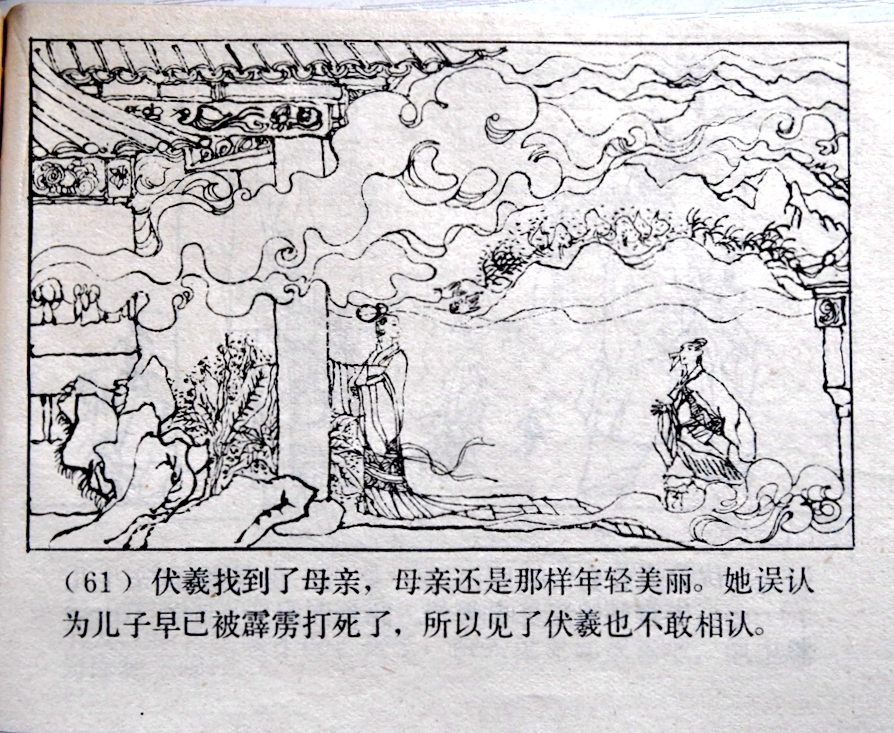 （61）伏羲找到了母亲，母亲还是那样年轻美丽。她误认
为儿子早已被霹雳打死了，所以见了伏羲也不敢相认。